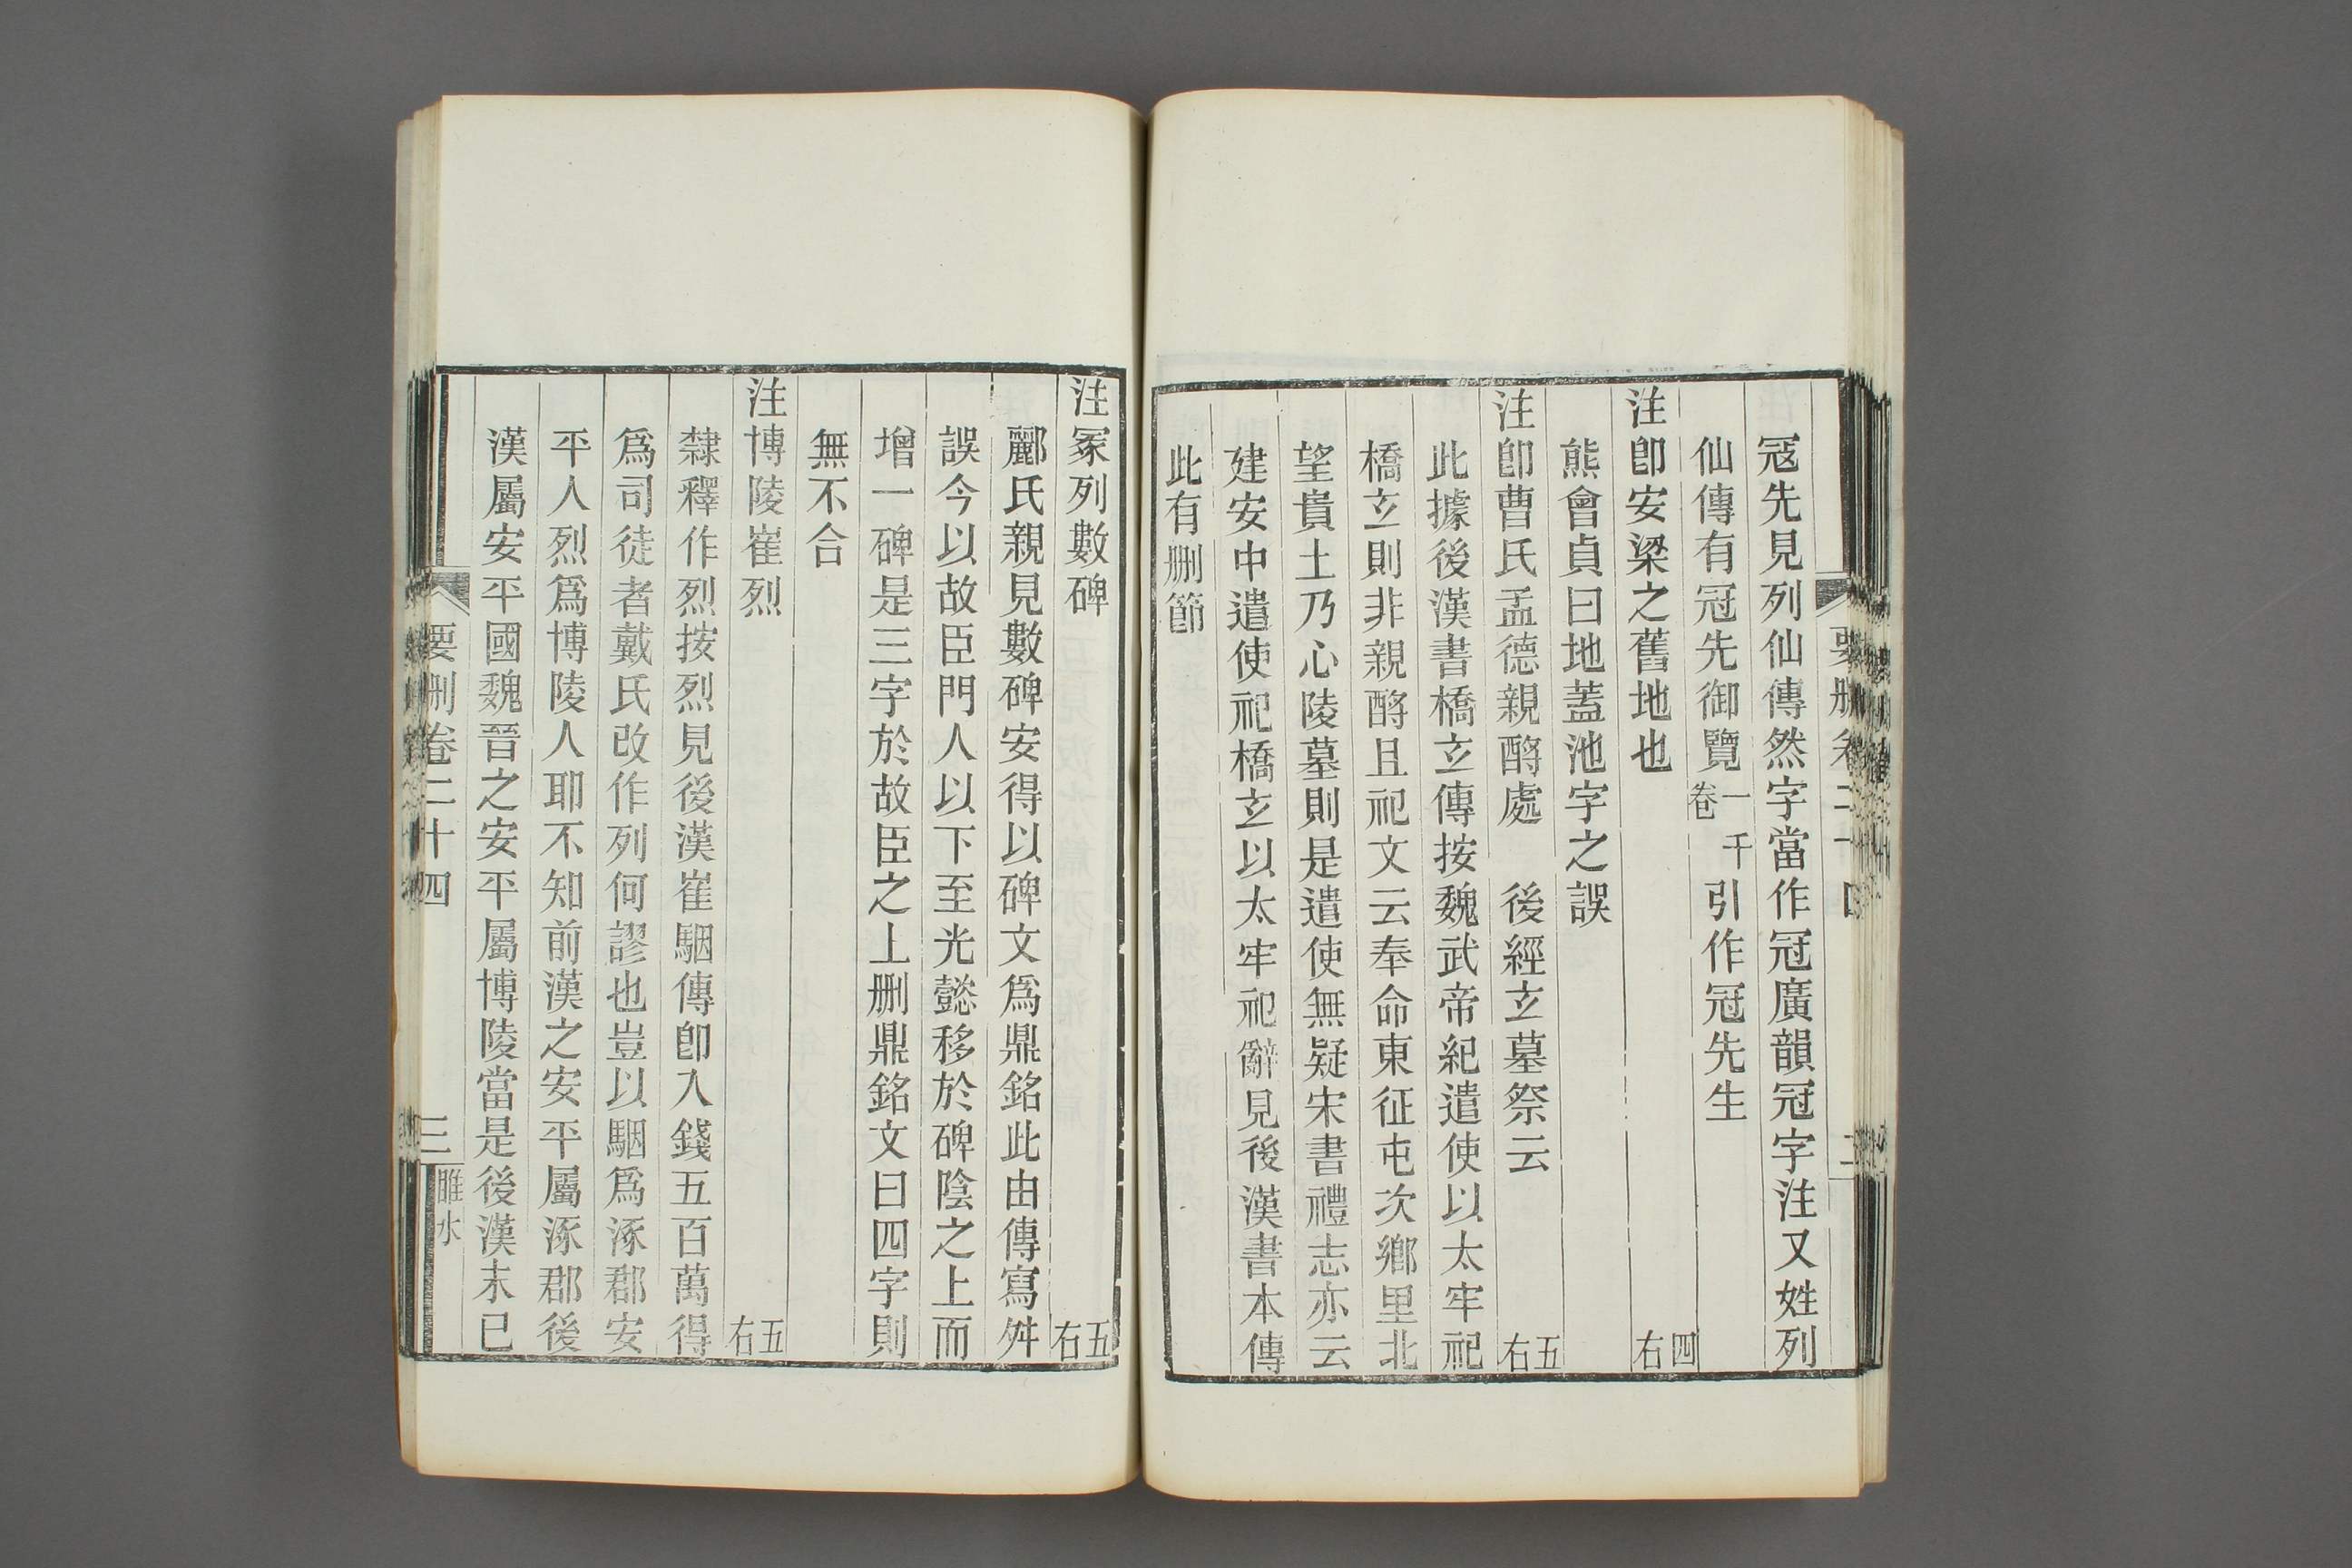 寇先見列仙傳然字當作冠廣韻冠字注又姓列
仙傳有冠先御覽一千卷引作冠先生
注卽安梁之舊地也 四右
熊會貞曰地蓋池字之誤
注卽曹氏孟德親酹處 後經玄墓祭云 五右
此據後漢書橋玄傳按魏武帝紀遣使以太牢祀
橋玄則非親酹且祀文云奉命東征屯次鄉里北
望貴土乃心陵墓則是遣使無疑宋書禮志亦云
建安中遣使祀橋玄以太牢祀辭見後漢書本傳
此有刪節
要刪卷二十四 二
注冢列數碑 五右
酈氏親見數碑安得以碑文爲鼎銘此由傳寫舛
誤今以故臣門人以下至光懿移於碑陰之上而
增一碑是三字於故臣之上刪鼎銘文曰四字則
無不合
注博陵崔烈 五右
隸釋作烈按烈見後漢崔駰傳卽入錢五百萬得
爲司徒者戴氏改作列何謬也豈以駰爲涿郡安
平人烈爲博陵人耶不知前漢之安平屬涿郡後
漢屬安平國魏晉之安平屬博陵當是後漢末已
要刪卷二十四 三 睢水